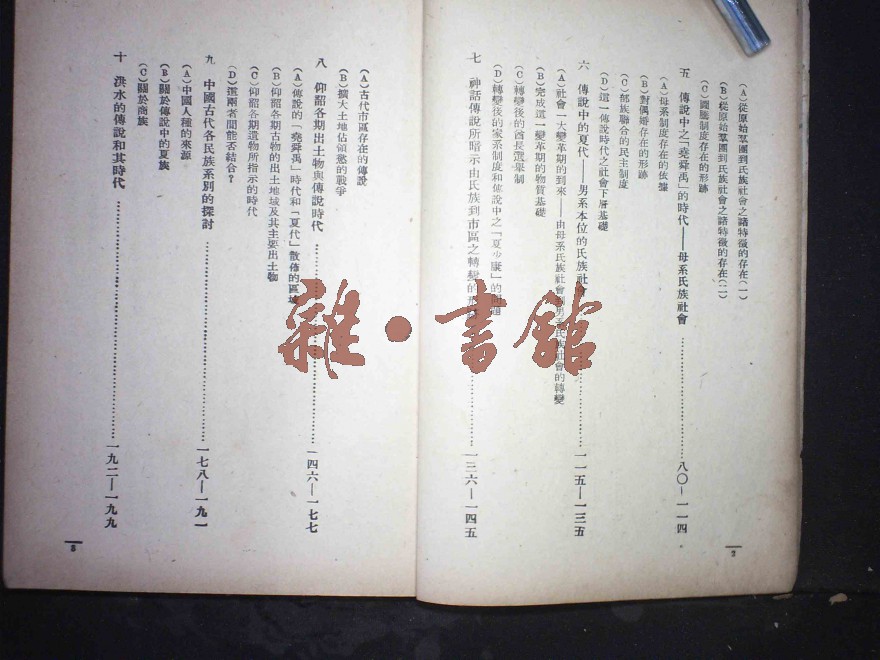 (A)從原始羣團到氏族社會之諸特徵的存在(一)
(B)從原始羣團到氏族社會之諸特徵的存在(二)
(C)圖騰制度存在的形跡
五 傳說中之「堯舜禹」的時代——母系氏族社會…………八〇—一一四
(A)母系制度存在的依據
(B)對偶婚存在的形跡
(C)部族聯合的民主制度
(D)這一傳說時代之社會下層基礎
六 傳說中的夏代——男系本位的氏族社會…………一一五—一三五
(A)社會一大變革期的到來——由母系氏族社會到男系氏族社會的轉變
(B)完成這一變革期的物質基礎
(C)轉變後的酋長選舉制
(D)轉變後的家系制度和傳說中之「夏少康」的問題
七 神話傳說所暗示由氏族到市區之轉變的…………一三六—一四五
2
(A)古代市區存在的傳說
(B)擴大土地佔領慾的戰爭
八 仰韶各期出土物與傳說時代…………一四六—一七七
(A)傳說的「堯舜禹」時代和「夏代」散佈的區域
(B)仰韶各期古物的出土地域及其主要出土物
(C)仰韶各期遺物所指示的時代
(D)這兩者間能否結合?
九 中國古代各民族系別的探討…………一七八—一九一
(A)中國人種的來源
(B)關於傳說中的夏族
(C)關於商族
十 洪水的傳說和其時代…………一九二—一九九
3
雜·書館